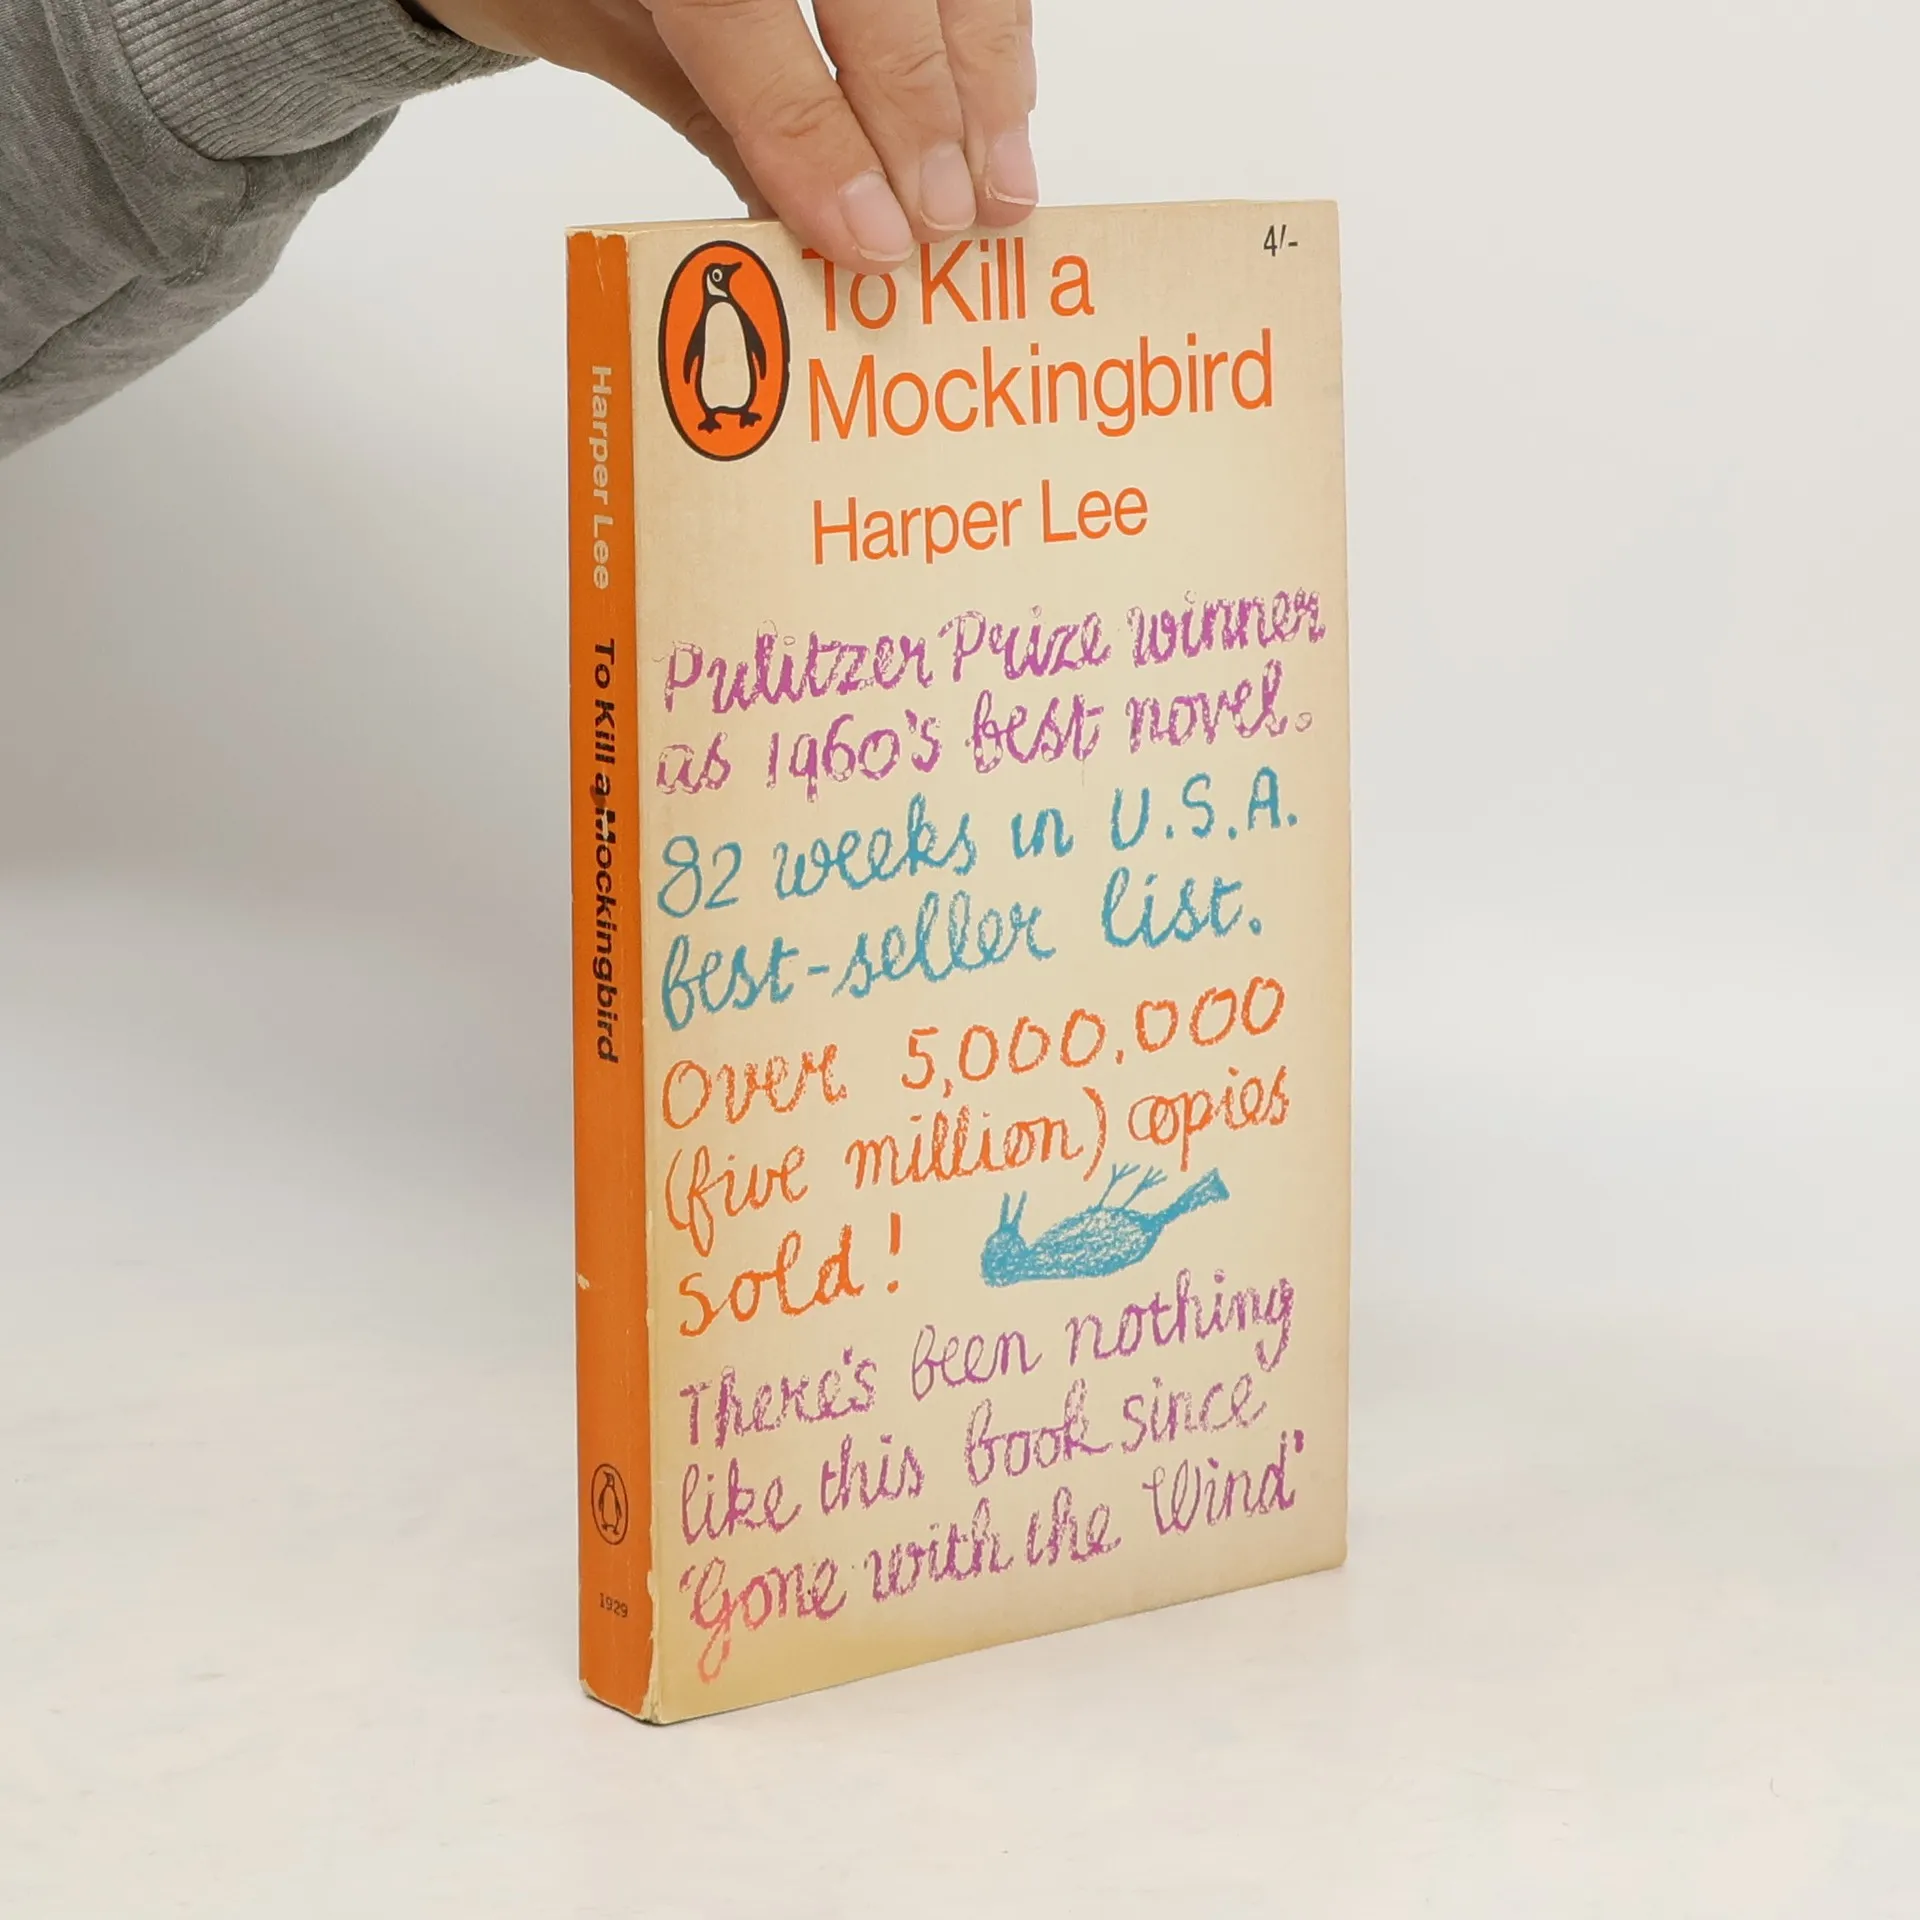 4/-
To Kill a
Mockingbird
Harper Lee
Pulitzer Prize winner
as 1960's best novel.
82 weeks in U.S.A.
best-seller list.
Over 5,000,000
(five million) copies
sold!
There's been nothing
like this book since
'Gone with the Wind'
Harper Lee To Kill a Mockingbird
1929